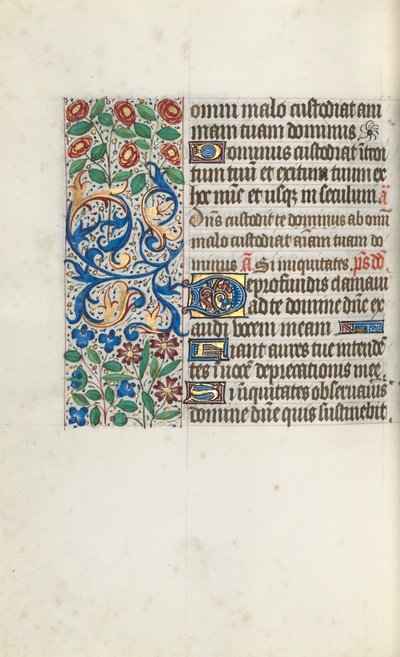 omni malo custodiat ani
mam tuam dominus
Dominus custodiat introi
tum tuũ et exitum tuum ex
hoc nũc et usq̃ in seculum a͠
Dñs custodit te dominus ab omĩ
malo custodiat aĩam tuam do
minus a͠ Si iniquitates p̃s dd
De profundis clamavi
ad te domine dñe ex
audi vocem meam
Fiant aures tue intende͂
tes in vocẽ deprecationis mee
Si iniquitates observaveris
domine dñe quis sustinebit